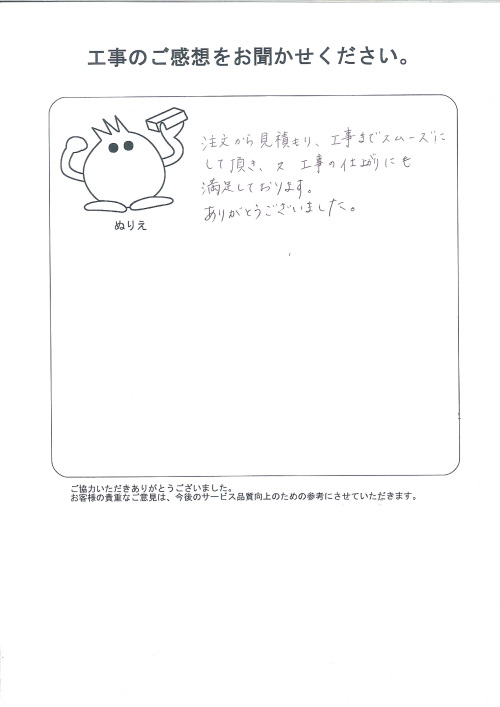 工事のご感想をお聞かせください。
注文から見積もり、工事までスムーズに
して頂き、又 工事の仕上がりにも
満足しております。
ありがとうございました。
ぬりえ
ご協力いただきありがとうございました。
お客様の貴重なご意見は、今後のサービス品質向上のための参考にさせていただきます。